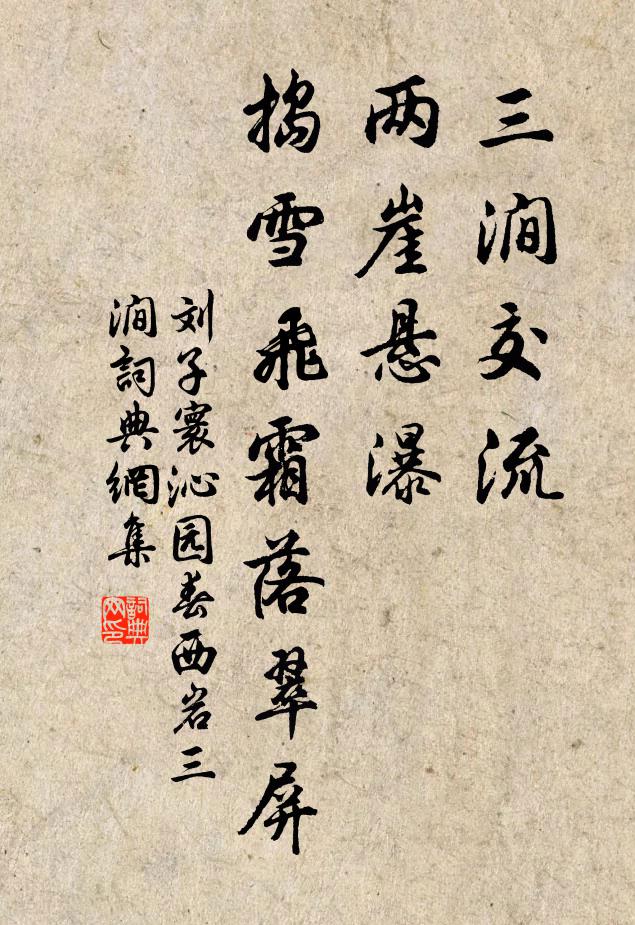 三涧交流
两崖悬瀑
捣雪飞霜落翠屏
刘子寰沁园春西岩三
涧詞典網集
詞典网印